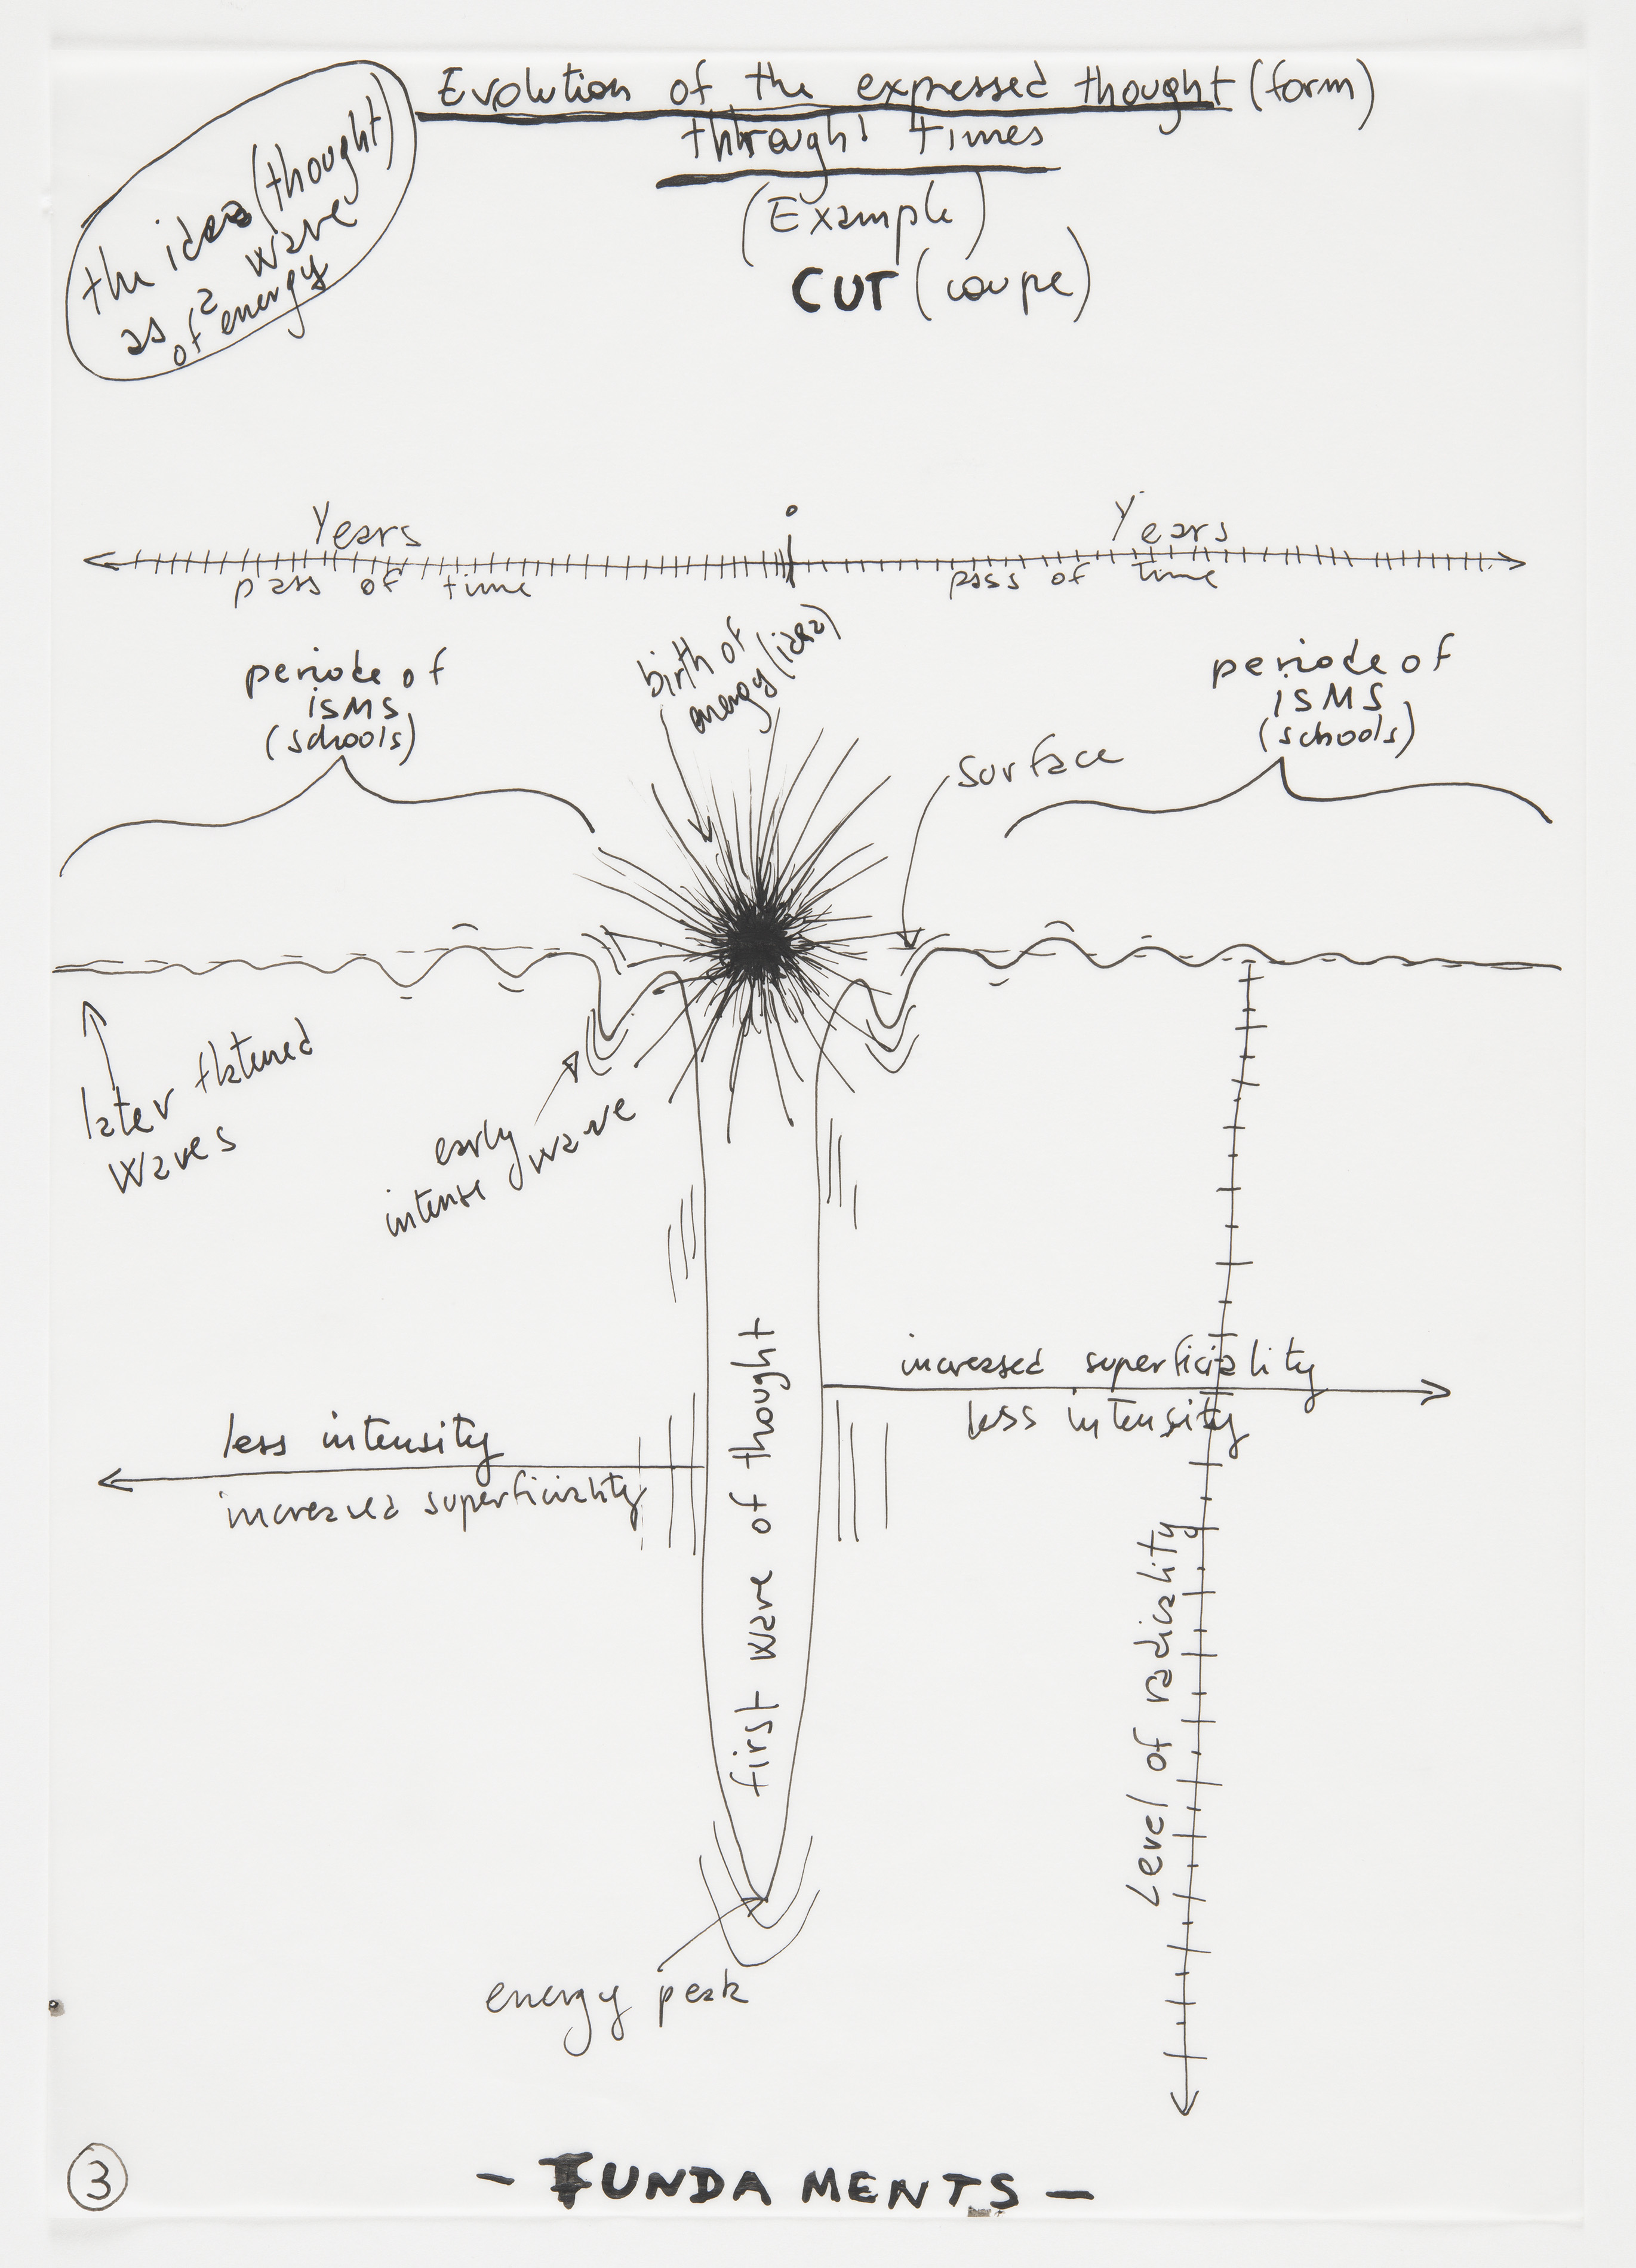 Evolution of the expressed thought (form)
through! times
(Example)
CUT (coupe)
the idea (thought)
as a wave
of energy
Years
pass of time
0
Years
pass of time
periode of
ISMS
(schools)
birth of
energy (idea)
surface
periode of
ISMS
(schools)
later flatened
waves
early
intense wave
first wave of thought
increased superficiality
less intensity
less intensity
increased superficiality
Level of radicality
energy peak
3
- FUNDAMENTS -